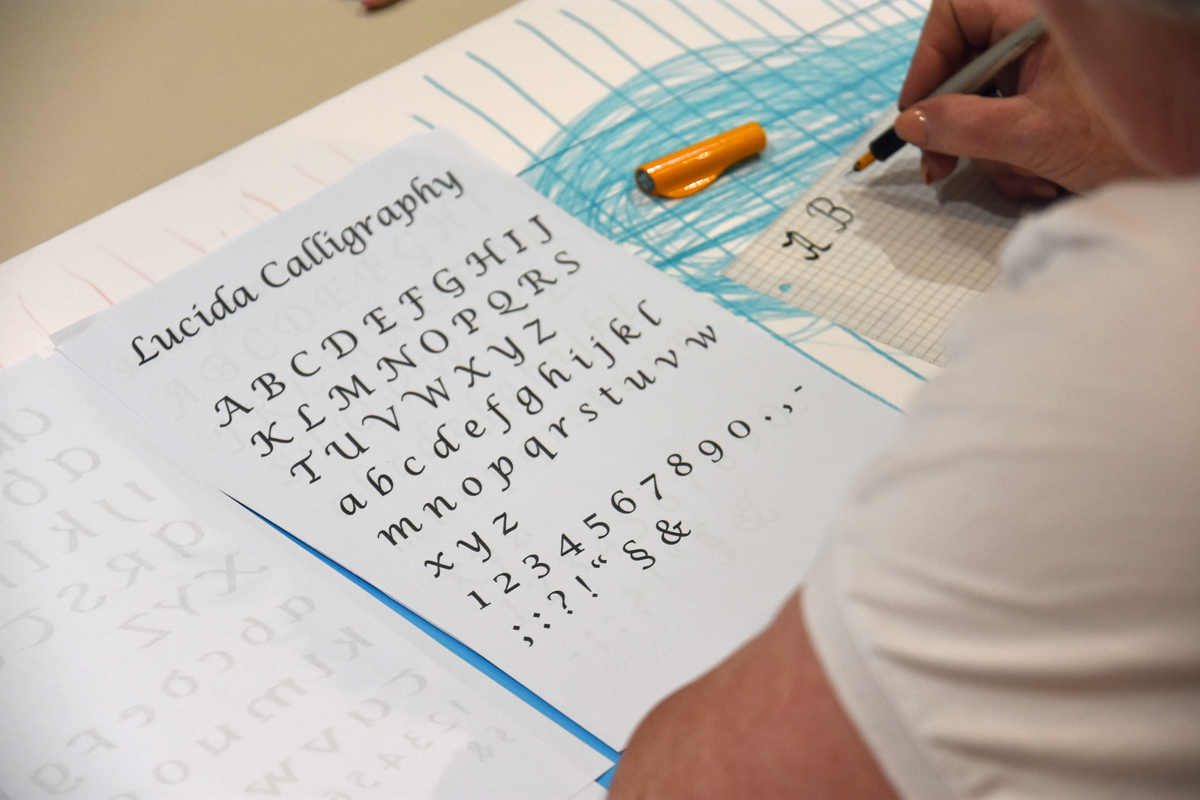 Lucida Calligraphy
A B C D E F G H I J
K L M N O P Q R S
T U V W X Y Z
a b c d e f g h i j k l
m n o p q r s t u v w
x y z
1 2 3 4 5 6 7 8 9 0 . , -
; : ? ! “ § &
A B